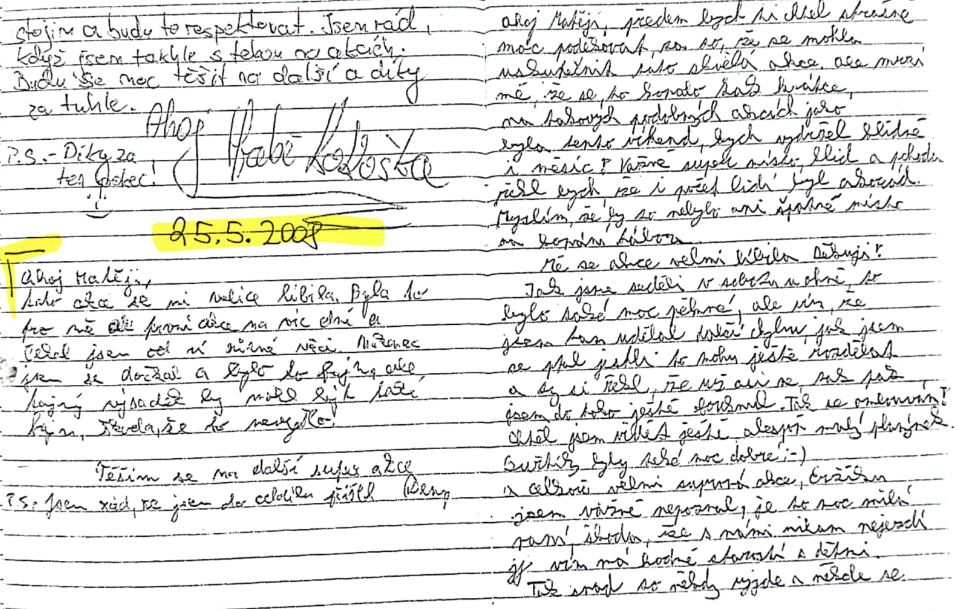 stojím a budu to respektovat. Jsem rád,
když jsem takhle s tebou na akcích.
Budu se moc těšit na další a díky
za tuhle.
Ahoj
P.S. - Díky za
ten
25.5.2008
Ahoj Matěji,
tato akce se mi velice líbila. Byla to
pro mě první akce na víc dní a
čekal jsem od ní různé věci.
jsem se dočkal a bylo to fajn, ale
tajný výsadek by mohl být také
fajn, škoda, že to nevyšlo!
Těším se na další super akce
P.S.: Jsem rád, že jsem do oddílu přišel
ahoj Matěji, předem bych ti chtěl strašně
moc poděkovat, za to, že se mohla
uskutečnit tato skvělá akce, ale mrzí
mě, že se to konalo tak krátce,
na takových podobných akcích jako
byla tento víkend, bych vydržel klidně
i měsíc! Vážně super místo, klid a pohoda
řekl bych, že i počet lidí byl akorád.
Myslím, že by to nebylo ani špatné místo
na konání tábora.
Mě se akce velmi líbila Děkuji!
Jak jsme seděli v sobotu u ohně, to
bylo také moc pěkné, ale vím, že
jsem tam udělal další chybu, jak jsem
se ptal jestli to mohu ještě rozdělat
a ty si řekl, že už ani ne, tak pak
jsem do toho ještě fouknul. Tak se omlouvám!
Chtěl jsem vidět ještě alespň malý plamínek.
Buřtíky byly také moc dobré :-)
a celkově velmi suprová akce,
jsem vážně nepoznal, je to moc milá
paní, škoda, že s námi nikam nejezdí
vím má hodně starostí s dětmi.
Tak snad to někdy vyjde a někde se